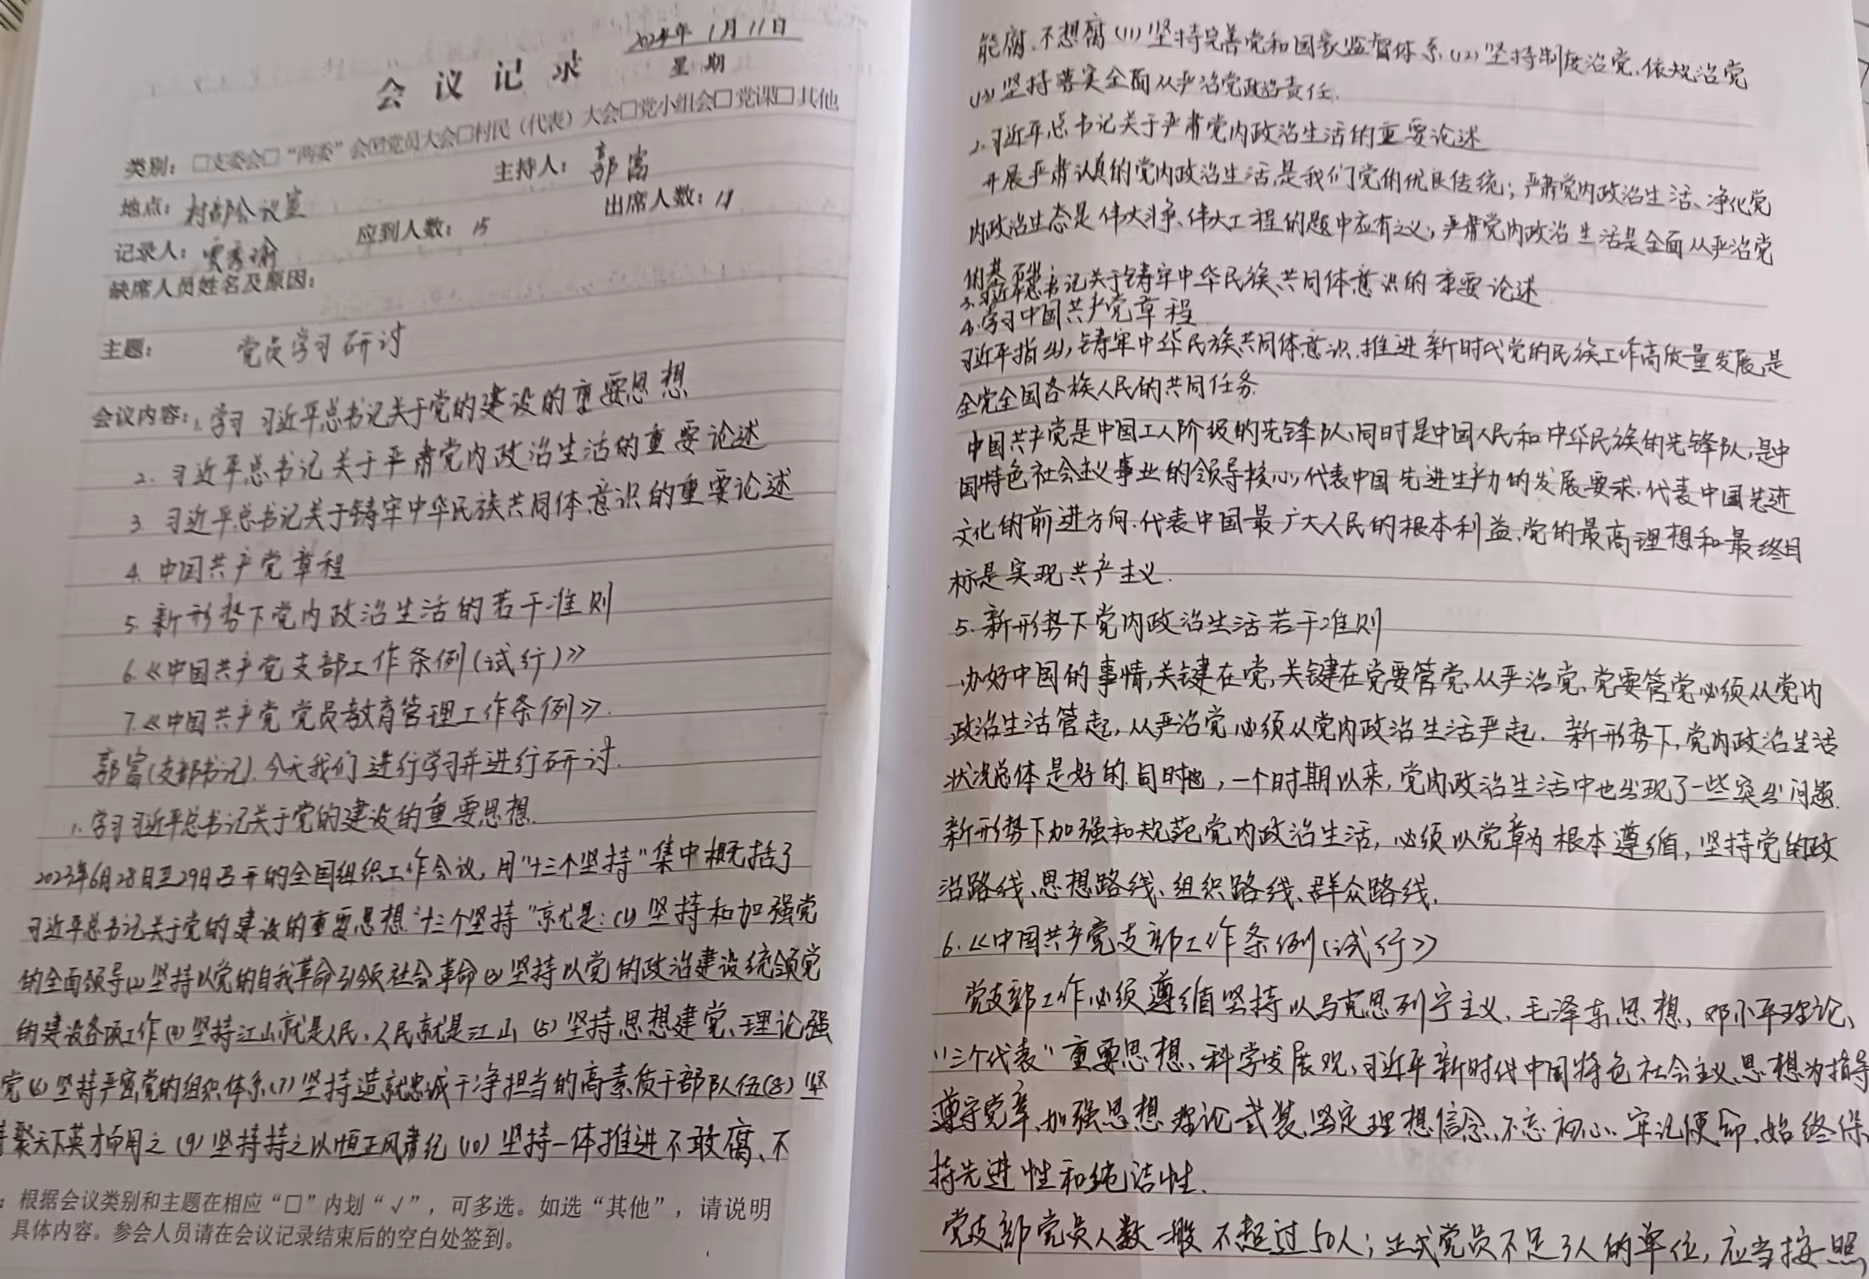 2024年1月11日
会议记录
星期
类别：□支委会□“两委”会☑党员大会□村民（代表）大会□党小组会□党课□其他
地点：村部会议室 主持人：郭富
记录人： 应到人数：15 出席人数：11
缺席人员姓名及原因：
主题：党员学习研讨
会议内容：1.学习习近平总书记关于党的建设的重要思想
2.习近平总书记关于严肃党内政治生活的重要论述
3.习近平总书记关于铸牢中华民族共同体意识的重要论述
4.中国共产党章程
5.新形势下党内政治生活的若干准则
6.《中国共产党支部工作条例(试行)》
7.《中国共产党党员教育管理工作条例》.
郭富(支部书记).今天我们进行学习并进行研讨.
1.学习习近平总书记关于党的建设的重要思想.
2023年6月28日至29日召开的全国组织工作会议，用“十三个坚持”集中概括了
习近平总书记关于党的建设的重要思想“十三个坚持”就是:(1)坚持和加强党
的全面领导(2)坚持以党的自我革命引领社会革命(3)坚持以党的政治建设统领党
的建设各项工作(4)坚持江山就是人民，人民就是江山(5)坚持思想建党、理论强
党(6)坚持严密党的组织体系(7)坚持造就忠诚干净担当的高素质干部队伍(8)坚
持聚天下英才而用之(9)坚持持之以恒正风肃纪(10)坚持一体推进不敢腐、不
：根据会议类别和主题在相应“□”内划“√”，可多选。如选“其他”，请说明
具体内容。参会人员请在会议记录结束后的空白处签到。
能腐、不想腐(11)坚持完善党和国家监督体系(12)坚持制度治党、依规治党
(13)坚持落实全面从严治党政治责任.
2.习近平总书记关于严肃党内政治生活的重要论述
开展严肃认真的党内政治生活,是我们党的优良传统;严肃党内政治生活、净化党
内政治生态是伟大斗争、伟大工程的题中应有之义;严肃党内政治生活是全面从严治党
的基础.
3.习近平总书记关于铸牢中华民族共同体意识的重要论述
4.学习中国共产党章程
习近平指出,铸牢中华民族共同体意识、推进新时代党的民族工作高质量发展是
全党全国各族人民的共同任务.
中国共产党是中国工人阶级的先锋队,同时是中国人民和中华民族的先锋队,是中
国特色社会主义事业的领导核心,代表中国先进生产力的发展要求,代表中国先进
文化的前进方向,代表中国最广大人民的根本利益.党的最高理想和最终目
标是实现共产主义.
5.新形势下党内政治生活若干准则
办好中国的事情,关键在党,关键在党要管党、从严治党,党要管党必须从党内
政治生活管起,从严治党必须从党内政治生活严起.新形势下,党内政治生活
状况总体是好的.同时也,一个时期以来,党内政治生活中也出现了一些突出问题.
新形势下加强和规范党内政治生活,必须以党章为根本遵循,坚持党的政
治路线、思想路线、组织路线、群众路线.
6.《中国共产党支部工作条例(试行)》
党支部工作必须遵循坚持以马克思列宁主义、毛泽东思想、邓小平理论、
“三个代表”重要思想、科学发展观、习近平新时代中国特色社会主义思想为指导
遵守党章,加强思想理论武装,坚定理想信念,不忘初心、牢记使命,始终保
持先进性和纯洁性.
党支部党员人数一般不超过50人;正式党员不足3人的单位,应当按照